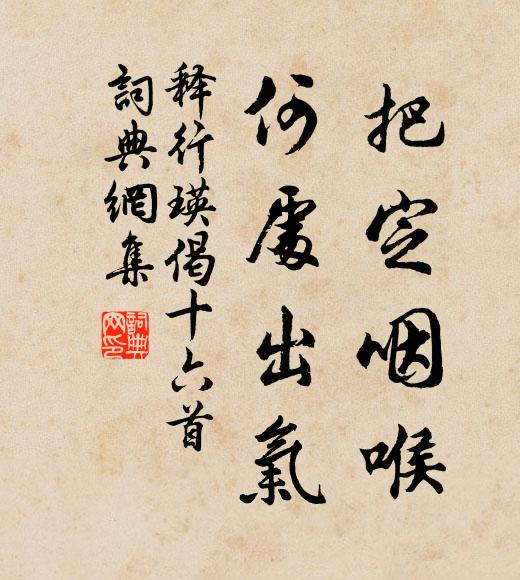 把定咽喉
何處出氣
释行瑛偈十六首
詞典網集
詞典網印